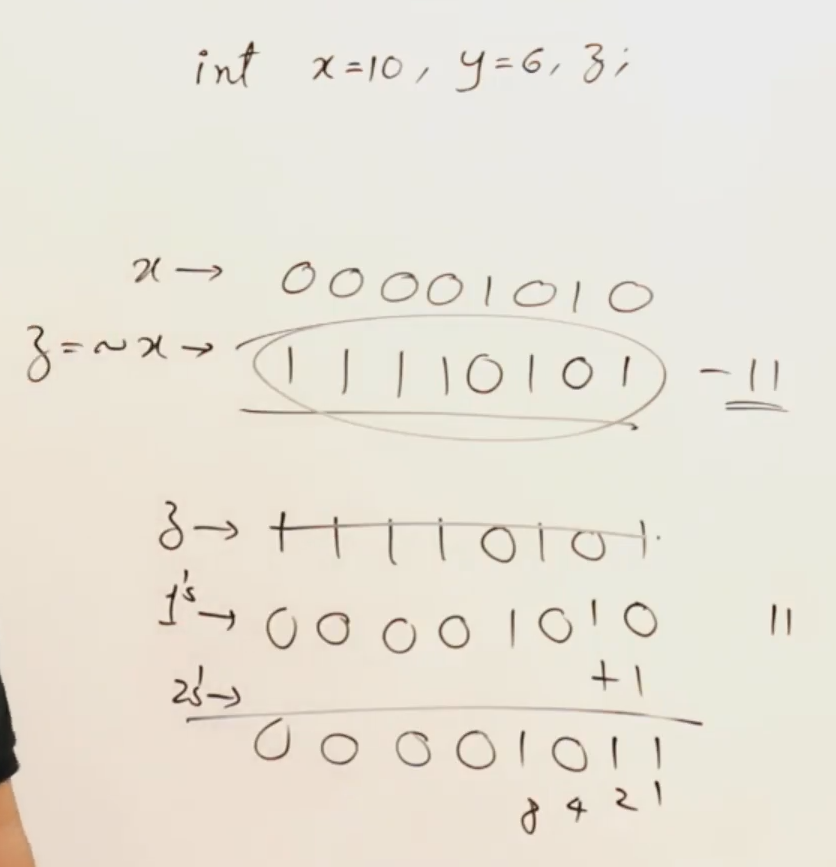 int x=10, y=6, z;
x→ 00001010
z=~x→ 11110101 -11
z→ 11110101
1's→ 00001010 11
+1
2's→
00001011
8 4 2 1